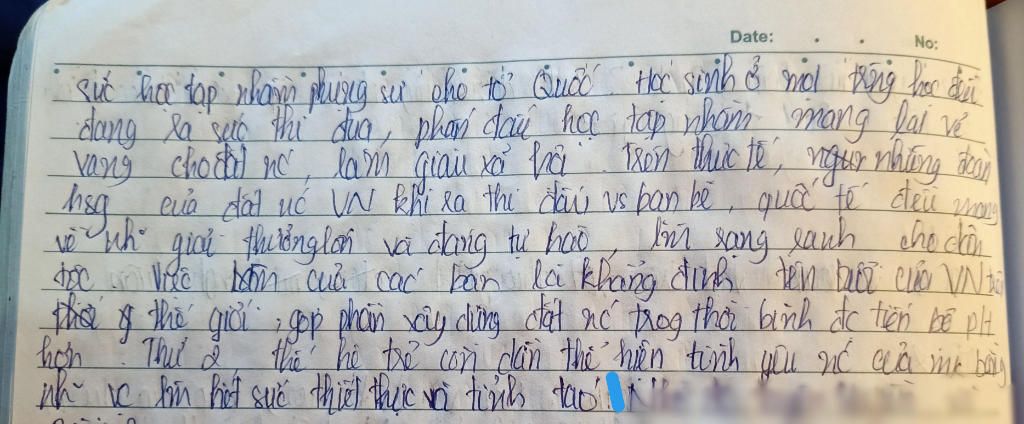 Date: . . No:
sức học tập nhằm phụng sự cho tổ Quốc. Học sinh ở mọi trường học đều
đang ra sức thi đua, phấn đấu học tập nhằm mang lại vẻ
vang cho đất nc, làm giàu xã hội. Trên thực tế, những đoàn
hsg của đất nc VN khi ra thi đấu vs bạn bè, quốc tế đều mang
về nh~ giải thưởng lớn và đáng tự hào, làm rạng ranh cho dân
tộc. Việc làm của các bạn là khẳng định tên tuổi của VN trên
thế giới, góp phần xây dựng đất nc trog thời bình đc tiến bộ
hơn. Thứ 2 thế hệ trẻ còn dân thể hiện tình yêu nc của mk bằng
nh~ vc làm hết sức thiết thực và tỉnh táo